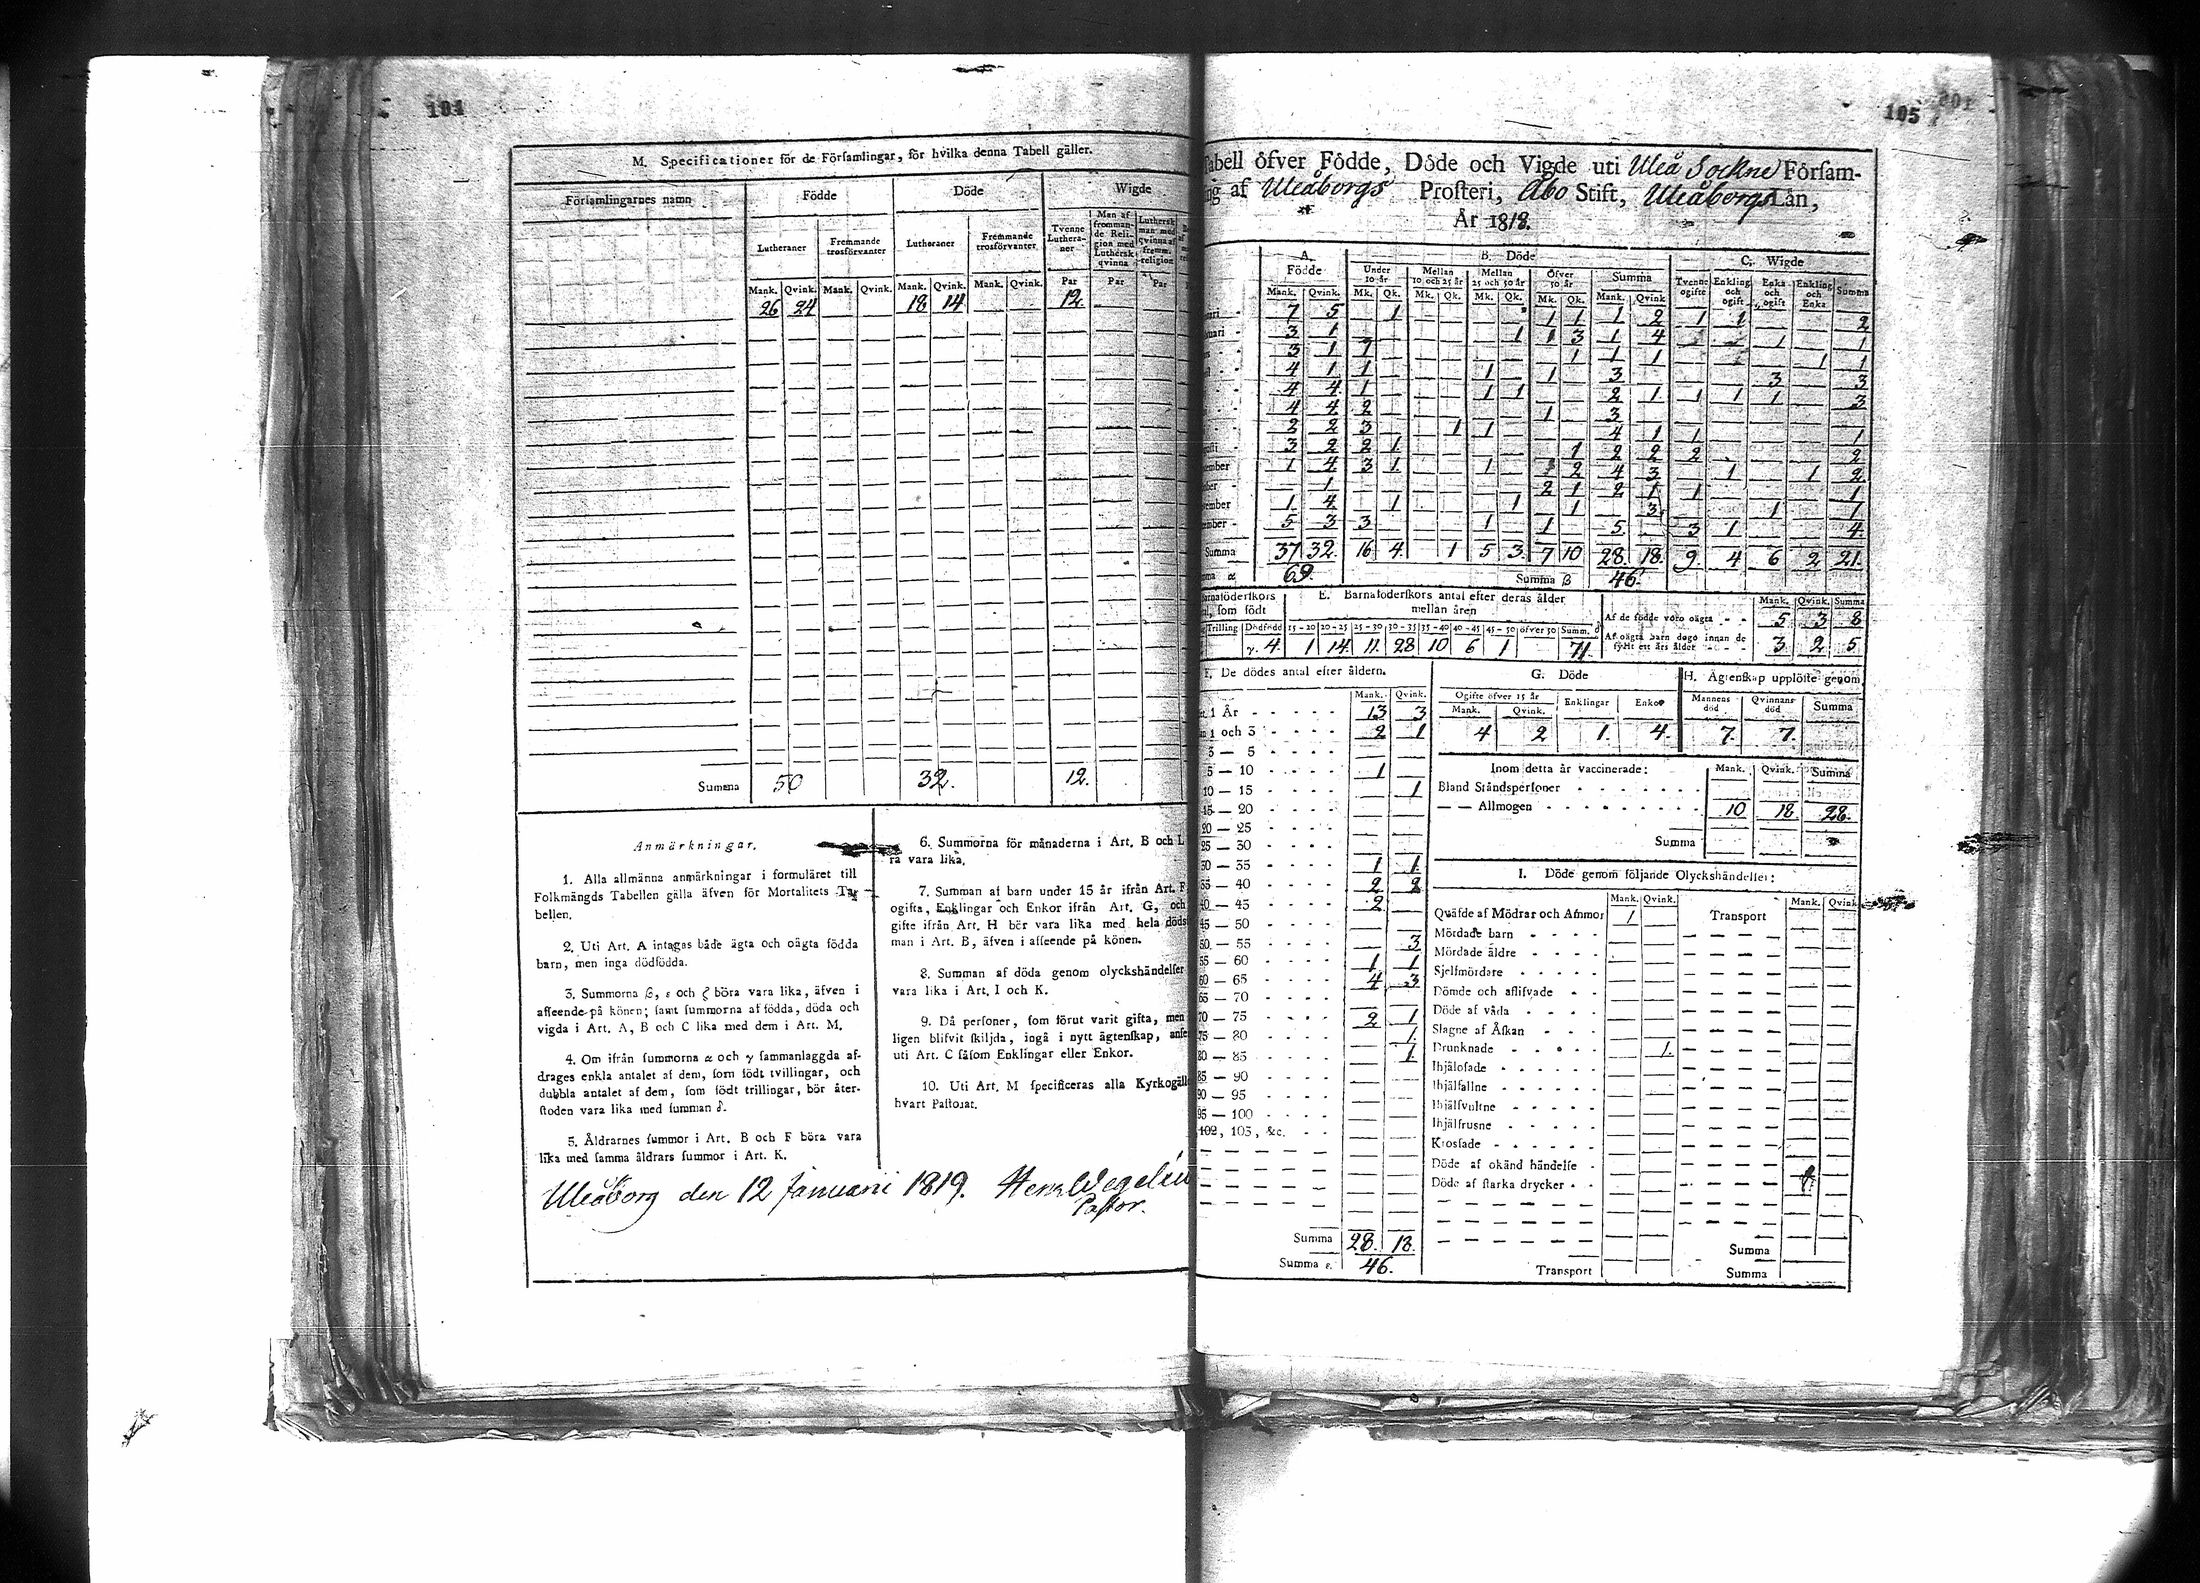 104
M. Specificationer för de Församlingar, för hvilka denna Tabell gäller.
Församlingarnes namn
Födde
Döde
Wigde
Lutheraner
Fremmande trosförvanter
Lutheraner
Fremmande trosförvanter
Tvenne Lutheraner
Man af fremmande Religion med Luthersk qvinna
Luthersk man med qvinna af fremm. religion
Mank. Qvink. Mank. Qvink. Mank. Qvink. Mank. Qvink. Par Par Par
26 24 18 14 12.
Summa 50 32. 12.
Anmärkningar.
1. Alla allmänna anmärkningar i formuläret till
Folkmängds Tabellen gälla äfven för Mortalitets Ta-
bellen.
2. Uti Art. A intagas både ägta och oägta födda
barn, men inga dödfödda.
3. Summorna β, ε och ζ böra vara lika, äfven i
afseende på könen; samt summorna af födda, döda och
vigda i Art. A, B och C lika med dem i Art. M.
4. Om ifrån summorna α och γ sammanlaggda af-
drages enkla antalet af dem, som födt tvillingar, och
dubbla antalet af dem, som födt trillingar, bör åter-
stoden vara lika med summan δ.
5. Åldrarnes summor i Art. B och F böra vara
lika med samma åldrars summor i Art. K.
6. Summorna för månaderna i Art. B och L
ra vara lika.
7. Summan af barn under 15 år ifrån Art. F
ogifta, Enklingar och Enkor ifrån Art. G, och
gifte ifrån Art. H bör vara lika med hela döds
man i Art. B, äfven i afseende på könen.
8. Summan af döda genom olyckshändelser
vara lika i Art. I och K.
9. Då personer, som förut varit gifta, men
ligen blifvit skiljda, ingå i nytt ägtenskap, anse
uti Art. C såsom Enklingar eller Enkor.
10. Uti Art. M specificeras alla Kyrkogäll
hvart Pastorat.
Uleåborg den 12 Januarii 1819.
Pastor.
105
Tabell öfver Födde, Döde och Vigde uti Uleå Sockne Församling af Uleåborgs Prosteri, Åbo Stift, Uleåborgs Län,
År 1818.
A. Födde
B. Döde
C. Wigde
Under 10 år
Mellan 10 och 25 år
Mellan 25 och 50 år
Öfver 50 år
Summa
Tvenne ogifte
Enkling och ogift
Enka och ogift
Enkling och Enka
Summa
Mank. Qvink. Mk. Qk. Mk. Qk. Mk. Qk. Mk. Qk. Mank. Qvink
uari 7 5 1 1 1 1 2 1 1 2
ruari 3 1 1 1 3 1 4 1 1
3 1 1 1 1 1 1 1
4 1 1 1 1 3 3 3
4 4 1 1 1 2 1 1 1 1 3
4 4 2 1 3
2 2 3 1 1 4 1 1 1
gusti 3 2 2 1 1 2 2 2 2
tember 1 4 3 1 1 2 4 3 1 1 2
ober 1 2 1 2 1 1 1
vember 1 4 1 1 1 3 1 1
ember 5 3 3 1 1 5 3 1 4
Summa 37 32. 16 4. 1 5 3. 7 10 28. 18. 9. 4 6 2 21.
α 69. Summa β 46.
Barnaföderskors
som födt
E. Barnaföderskors antal efter deras ålder
mellan åren
Trilling Dödfödd 15-20 20-25 25-30 30-35 35-40 40-45 45-50 öfver 50 Summ. δ
γ. 4. 1 14. 11. 28 10 6 1 71.
Mank. Qvink. Summa
Af de födde voro oägta 5 3 8
Af oägta barn dogo innan de fyllt ett års ålder 3 2 5
F. De dödes antal efter åldern.
Mank. Qvink.
1 År 13 3
1 och 3 2 1
3 — 5
5 — 10 1
10 — 15 1
15 — 20
20 — 25
25 — 30
30 — 35 1 1
35 — 40 2 2
40 — 45 2
45 — 50
50 — 55 3
55 — 60 1 1
60 — 65 4 3
65 — 70
70 — 75 2 1
75 — 80 1
80 — 85 1
85 — 90
90 — 95
95 — 100
102, 103, &c.
Summa 28. 18.
Summa ε. 46.
G. Döde
Ogifte öfver 15 år
Mank. Qvink. Enklingar Enkor
4 2 1. 4.
H. Ägtenskap upplöste genom
Mannens död Qvinnans död Summa
7. 7.
Inom detta år vaccinerade: Mank. Qvink. Summa
Bland Ståndspersoner
— — Allmogen 10 18 28.
Summa
I. Döde genom följande Olyckshändelser:
Mank. Qvink. Transport Mank. Qvink
Qväfde af Mödrar och Ammor 1
Mördade barn
Mördade äldre
Sjelfmördare
Dömde och aflifvade
Döde af våda
Slagne af Åskan
Drunknade 1.
Ihjälosade
Ihjälfallne
Ihjälsvultne
Ihjälfrusne
Krossade
Döde af okänd händelse
Döde af starka drycker
Transport
Summa
Summa